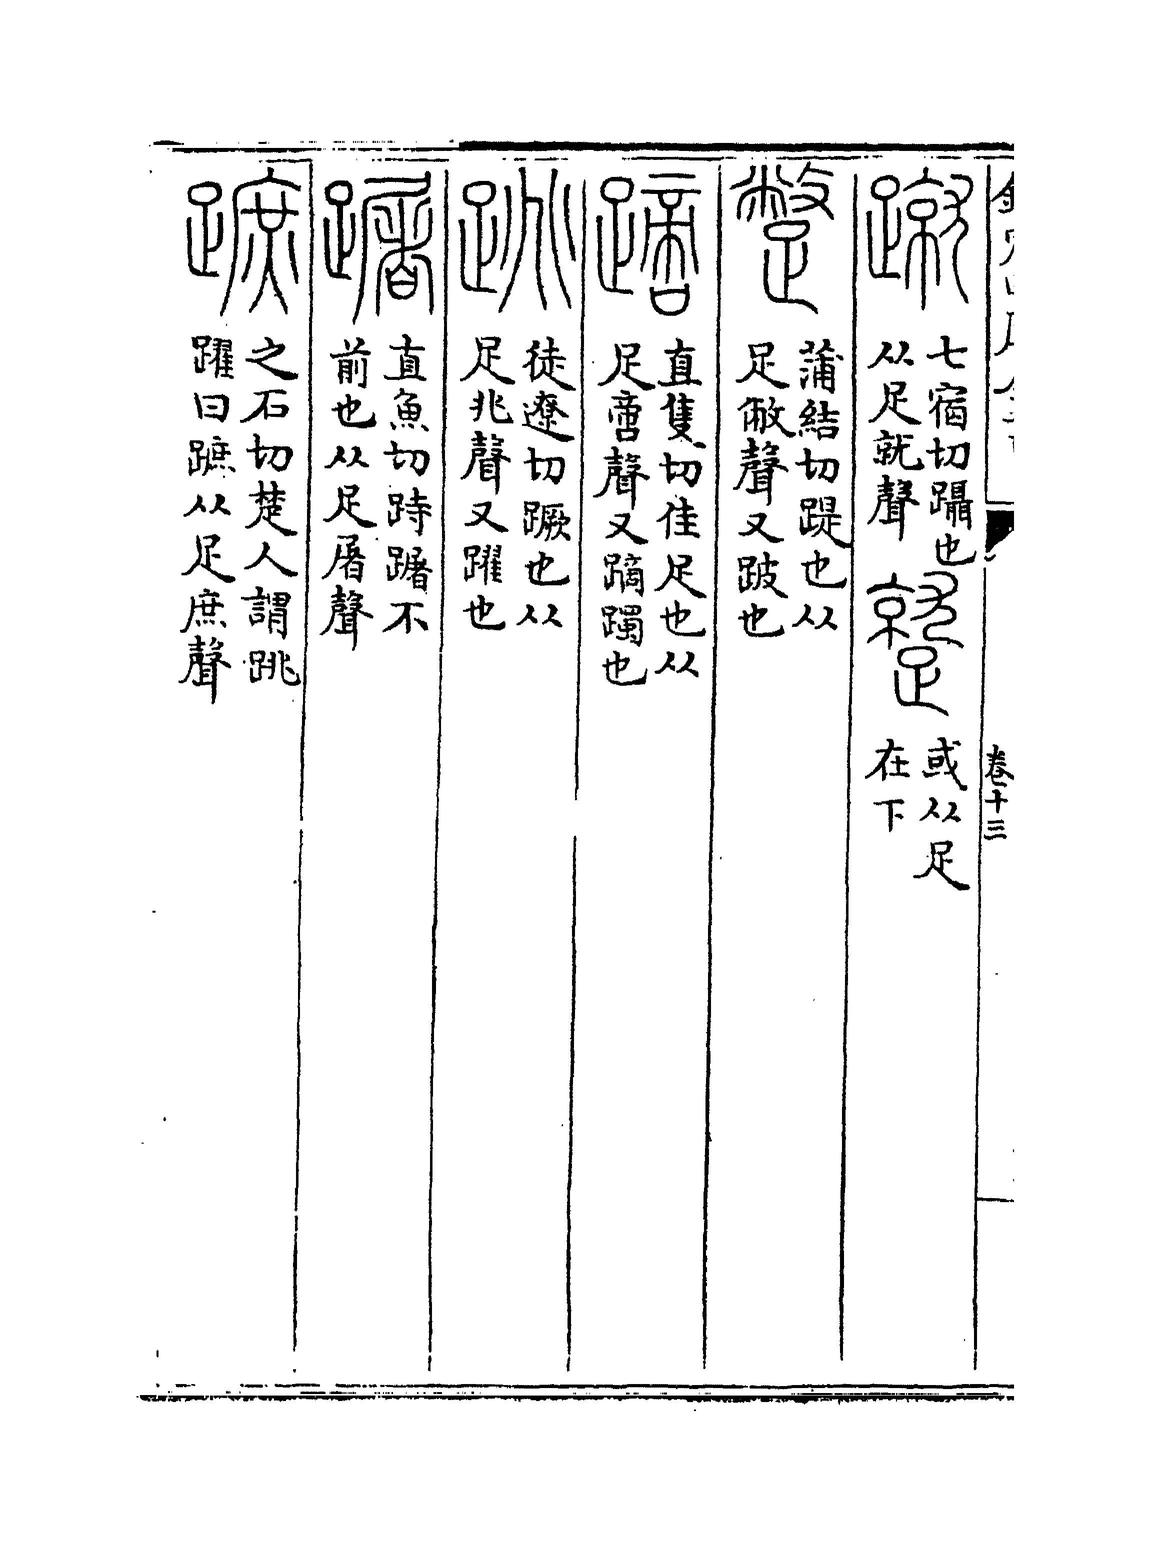 卷十三
蹴 七宿切躡也
从足就聲
蹵 或从足
在下
蹩 蒲結切踶也从
足敝聲又跛也
蹢 直隻切住足也从
足啻聲又蹢躅也
跳 徒遼切蹶也从
足兆聲又躍也
躇 直魚切跱躇不
前也从足屠聲
蹠 之石切楚人謂跳
躍曰蹠从足庶聲